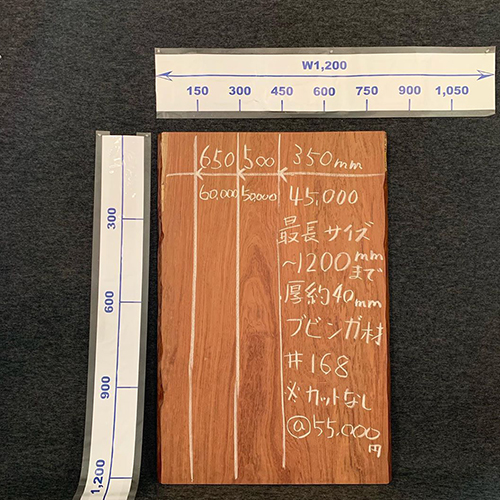 W1,200
150 300 450 600 750 900 1,050
300
600
900
1,200
650 500 350mm
60,000 50,000 45,000
最長サイズ
~1200mmまで
厚約40mm
ブビンガ材
#168
※カットなし
@55,000円